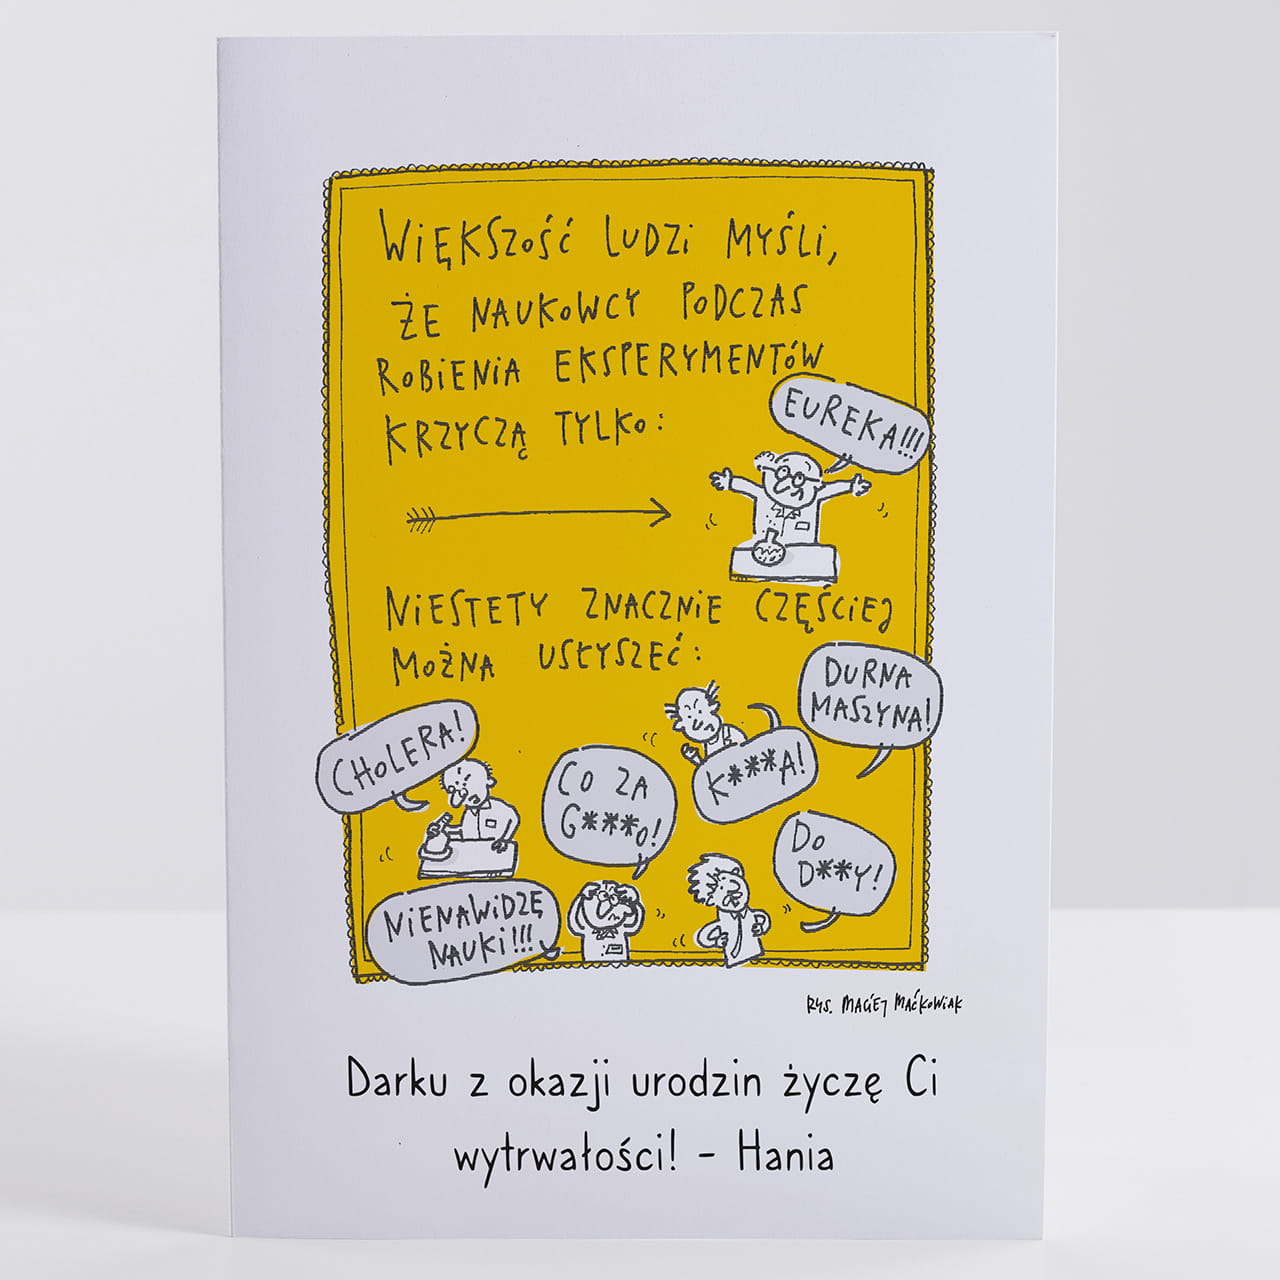 WIĘKSZOŚĆ LUDZI MYŚLI,
ŻE NAUKOWCY PODCZAS
ROBIENIA EKSPERYMENTÓW
KRZYCZĄ TYLKO:
EUREKA!!!
NIESTETY ZNACZNIE CZĘŚCIEJ
MOŻNA USŁYSZEĆ:
DURNA
MASZYNA!
CHOLERA!
K***A!
CO ZA
G***O!
DO
D**Y!
NIENAWIDZĘ
NAUKI!!!
RYS. MACIEJ MAĆKOWIAK
Darku z okazji urodzin życzę Ci
wytrwałości! - Hania